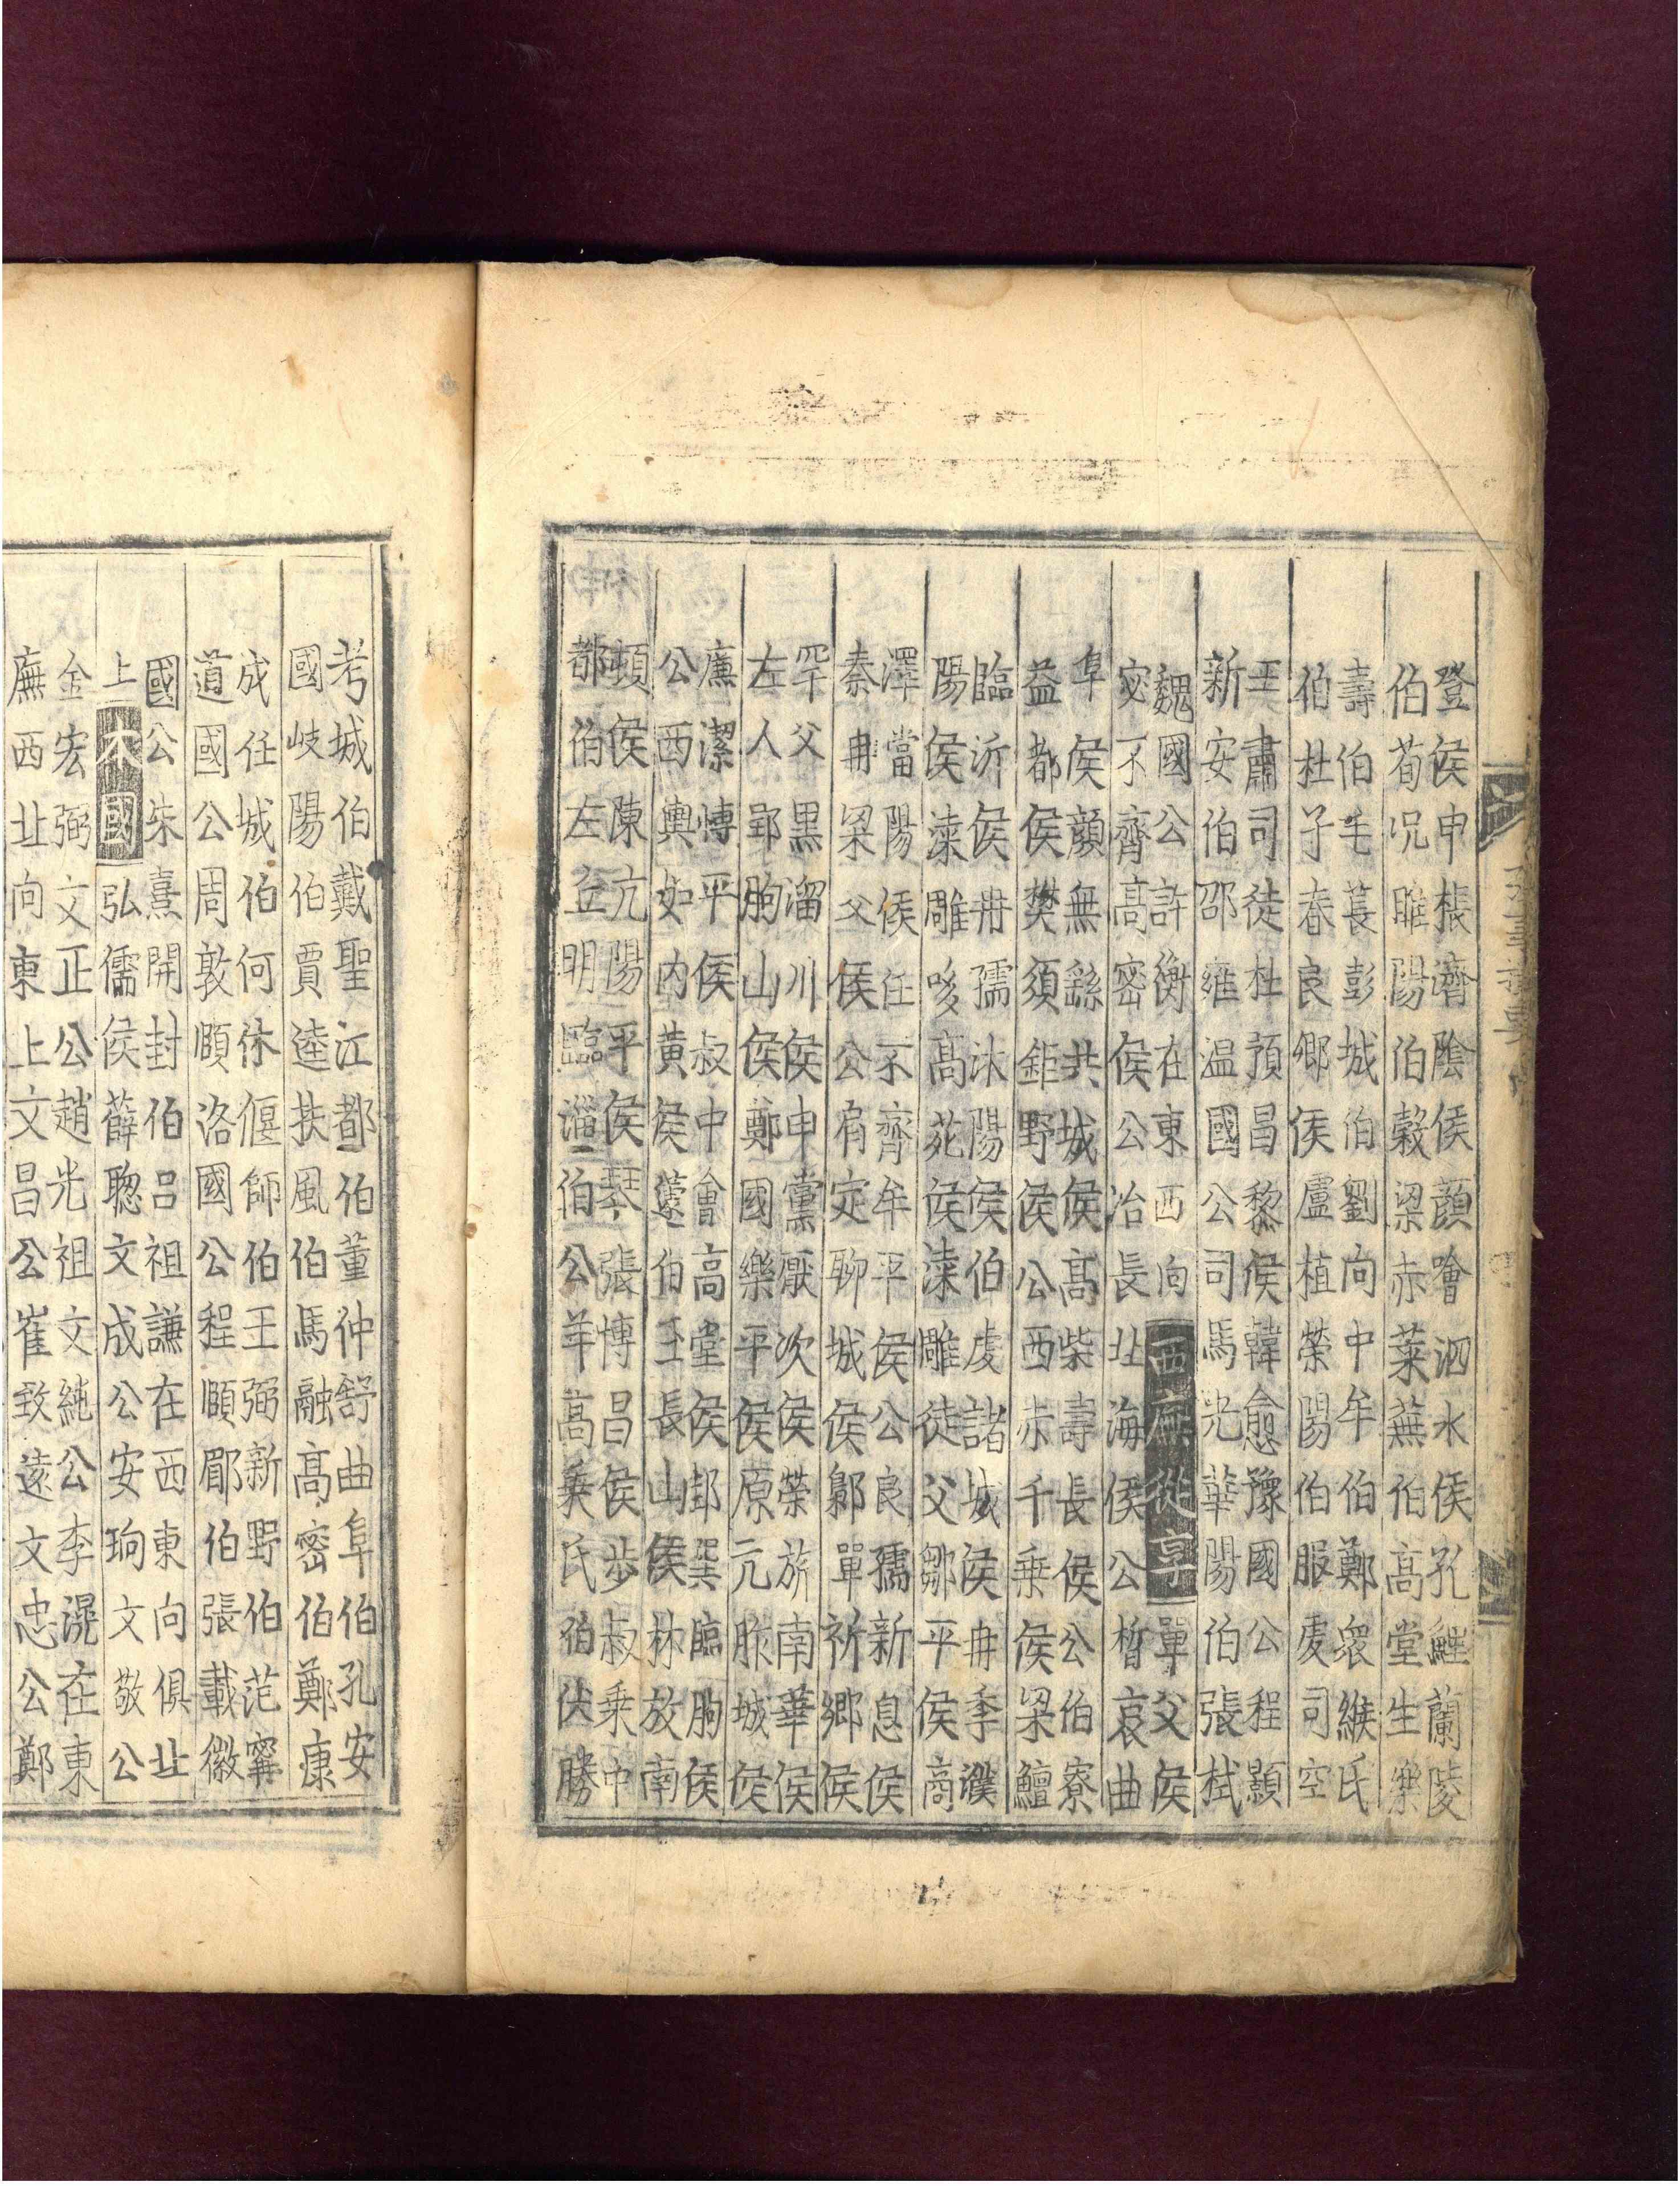 登侯申棖濟陰侯顔噲泗水侯孔鯉蘭陵
伯荀況睢陽伯穀梁赤萊蕪伯高堂生樂
壽伯毛萇彭城伯劉向中牟伯鄭衆緱氏
伯杜子春良鄉侯盧植滎陽伯服虔司空
王肅司徒杜預昌黎侯韓愈豫國公程顥
新安伯邵雍温國公司馬光華陽伯張栻
魏國公許衡在東西向西廡從享單父侯
宓不齊高密侯公冶長北海侯公晳哀曲
阜侯顔無繇共城侯高柴壽長侯公伯寮
益都侯樊須鉅野侯公西赤千乗侯梁鱣
臨沂侯冉孺沐陽侯伯虔諸城侯冉季濮
陽侯漆雕哆高苑侯漆雕徒父鄒平侯商
澤當陽侯任不齊牟平侯公良孺新息侯
秦冉梁父侯公肩定聊城侯鄡單祈鄉侯
罕父黒溜川侯申黨厭次侯榮旂南華侯
左人郢朐山侯鄭國樂平侯原亢胙城侯
廉潔博平侯叔中會高堂侯邽巽臨朐侯
公西輿如内黃侯蘧伯玉長山侯林放南
頓侯陳亢陽平侯琴張博昌侯步叔乗中
都伯左丘明臨淄伯公羊高乗氏伯伏勝
考城伯戴聖江都伯董仲舒曲阜伯孔安
國岐陽伯賈逵扶風伯馬融高密伯鄭康
成任城伯何休偃師伯王弼新野伯范寗
道國公周敦頤洛國公程頤郿伯張載徽
國公朱熹開封伯呂祖謙在西東向俱北
上本國弘儒侯薛聰文成公安珦文敬公
金宏弼文正公趙光祖文純公李滉在東
廡西北向東上文昌公崔致遠文忠公鄭